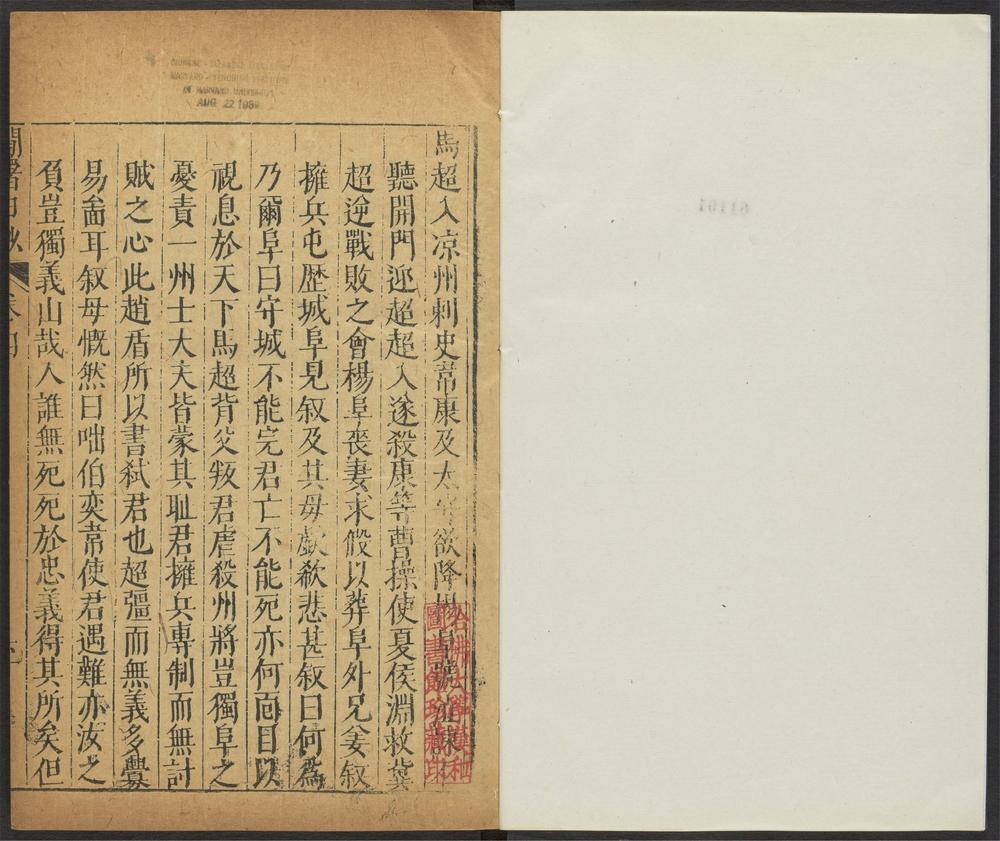 馬超入凉州刺史韋康及太守欲降楊阜號泣諫不
聽開門迎超超入遂殺康等曹操使夏侯淵救冀
超逆戰敗之會楊阜喪妻求假以葬阜外兄姜叙
擁兵屯歷城阜見叙及其母歔欷悲甚叙曰何爲
乃爾阜曰守城不能完君亡不能死亦何面目以
視息於天下馬超背父叛君虐殺州將豈獨阜之
憂責一州士大夫皆蒙其耻君擁兵專制而無討
賊之心此趙盾所以書弑君也超彊而無義多釁
易啚耳叙母慨然曰咄伯奕韋使君遇難亦汝之
負豈獨義山哉人誰無死死於忠義得其所矣但
卷四
哈佛大學漢和
圖書館珍藏印
CHINESE - JAPANESE
HARVARD-YENCHING INSTITUTE
AT HARVARD UNIVERSITY
AUG 22 1939